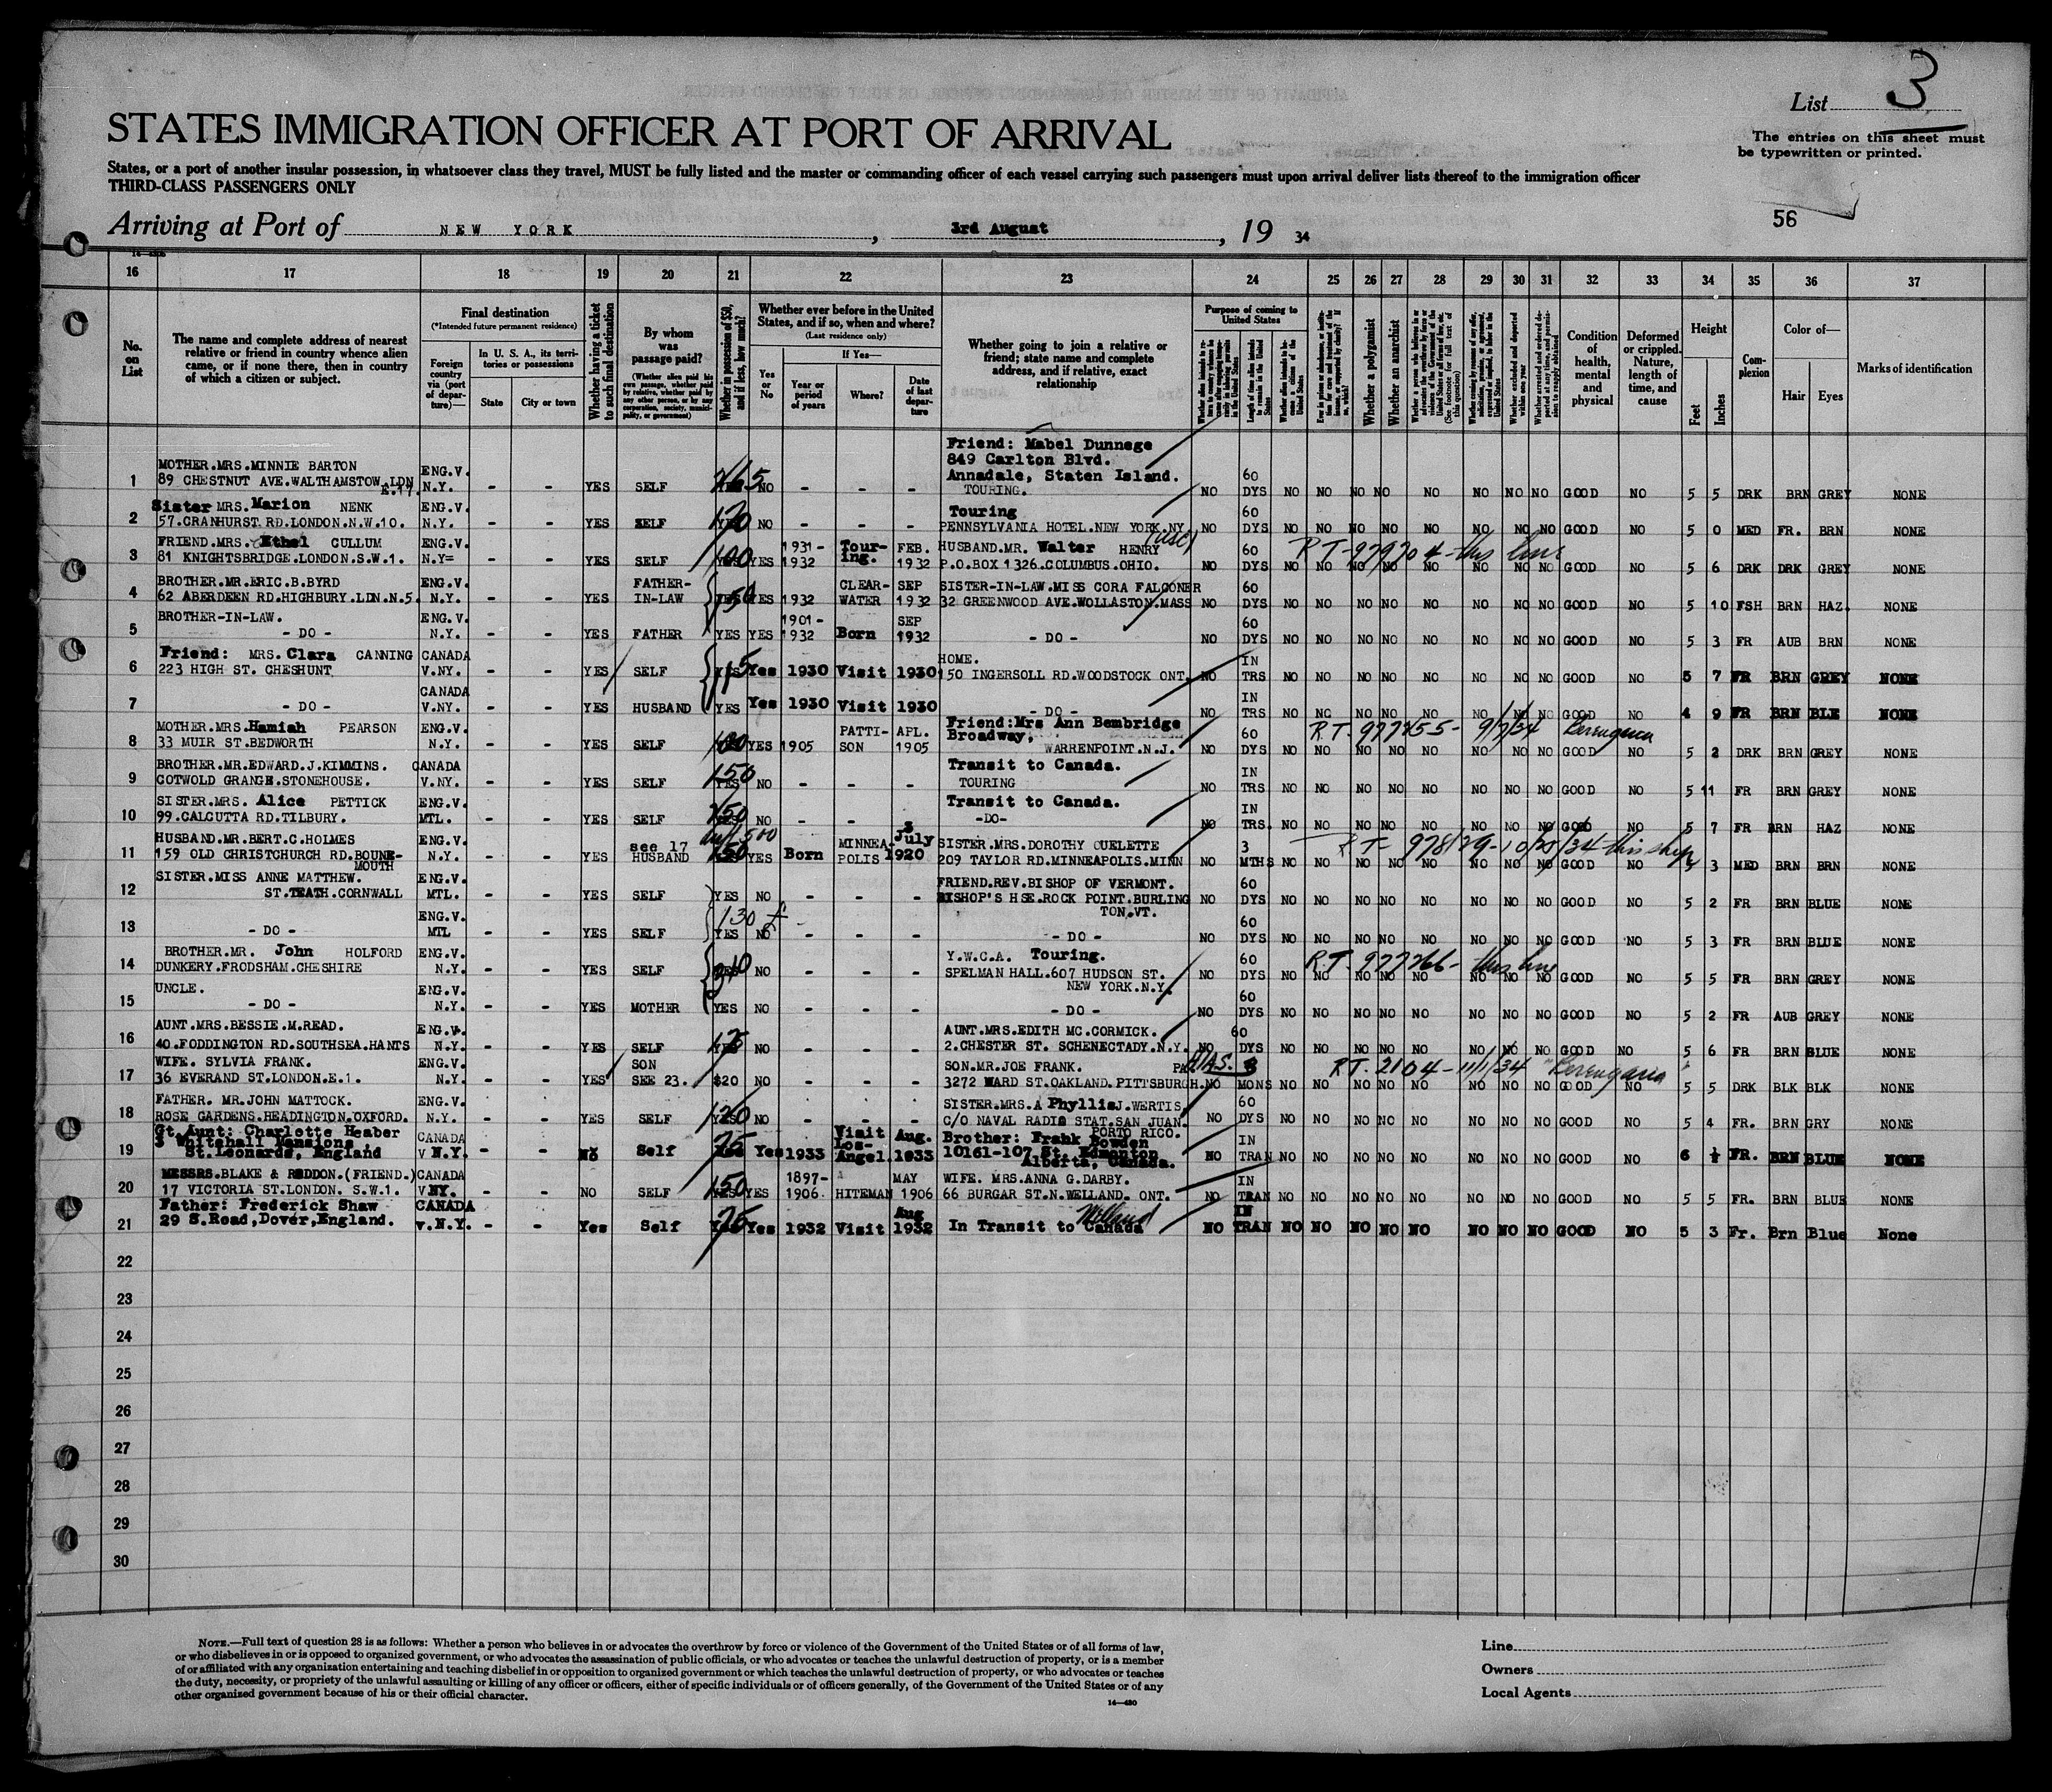 List 3
STATES IMMIGRATION OFFICER AT PORT OF ARRIVAL
The entries on this sheet must
be typewritten or printed.
States, or a port of another insular possession, in whatsoever class they travel, MUST be fully listed and the master or commanding officer of each vessel carrying such passengers must upon arrival deliver lists thereof to the immigration officer
THIRD-CLASS PASSENGERS ONLY
56
Arriving at Port of NEW YORK, 3rd August, 19 34
16 17 18 19 20 21 22 23 24 25 26 27 28 29 30 31 32 33 34 35 36 37
No. on List
The name and complete address of nearest relative or friend in country whence alien came, or if none there, then in country of which a citizen or subject.
Final destination
(*Intended future permanent residence)
Foreign country via (port of departure)—
In U. S. A., its territories or possessions
State
City or town
Whether having a ticket to such final destination
By whom was passage paid?
(Whether alien paid his own passage, whether paid by relative, whether paid by any other person, or by any corporation, society, municipality, or government)
Whether in possession of $50, and if less, how much?
Whether ever before in the United States, and if so, when and where?
(Last residence only)
Yes or No
If Yes—
Year or period of years
Where?
Date of last departure
Whether going to join a relative or friend; state name and complete address, and if relative, exact relationship
Purpose of coming to United States
Length of time alien intends to remain in the United States
Whether alien intends to become a citizen of the United States
Whether a polygamist
Whether an anarchist
Condition of health, mental and physical
Deformed or crippled. Nature, length of time, and cause
Height
Feet
Inches
Complexion
Color of—
Hair
Eyes
Marks of identification
1 MOTHER.MRS.MINNIE BARTON 89 CHESTNUT AVE.WALTHAMSTOW.LDN E.17. ENG.V. N.Y. - - YES SELF 265 NO - - - Friend: Mabel Dunnege 849 Carlton Blvd. Annadale, Staten Island. TOURING. NO 60 DYS NO NO NO NO NO NO NO NO GOOD NO 5 5 DRK BRN GREY NONE
2 Sister MRS. Marion NENK 57.CRANHURST RD.LONDON.N.W.10. ENG.V. N.Y. - - YES SELF 120 NO - - - Touring PENNSYLVANIA HOTEL.NEW YORK.NY. NO 60 DYS NO NO NO NO NO NO NO NO GOOD NO 5 0 MED FR. BRN NONE
3 FRIEND.MRS. Ethel CULLUM 81 KNIGHTSBRIDGE.LONDON.S.W.1. ENG.V. N.Y= - - YES SELF 100 YES 1931-1932 Touring. FEB. 1932 HUSBAND.MR. Walter HENRY (USC) P.O.BOX 1326.COLUMBUS.OHIO. NO 60 DYS NO NO NO NO NO NO NO NO GOOD NO 5 6 DRK DRK GREY NONE
RT-979204-this line
4 BROTHER.MR.ERIC.B.BYRD 62 ABERDEEN RD.HIGHBURY.LDN.N.5. ENG.V. N.Y. - - YES FATHER-IN-LAW 150 YES 1932 CLEARWATER SEP 1932 SISTER-IN-LAW.MISS CORA FALCONER 32 GREENWOOD AVE.WOLLASTON.MASS NO 60 DYS NO NO NO NO NO NO NO NO GOOD NO 5 10 FSH BRN HAZ. NONE
5 BROTHER-IN-LAW. - DO - ENG.V. N.Y. - - YES FATHER YES YES 1901-1932 Born SEP 1932 - DO - NO 60 DYS NO NO NO NO NO NO NO NO GOOD NO 5 3 FR AUB BRN NONE
6 Friend: MRS. Clara CANNING 223 HIGH ST. CHESHUNT CANADA V.NY. - - YES SELF 15 Yes 1930 Visit 1930 HOME. 150 INGERSOLL RD.WOODSTOCK ONT. NO IN TRS NO NO NO NO NO NO NO NO GOOD NO 5 7 FR BRN GREY NONE
7 - DO - CANADA V.NY. - - YES HUSBAND YES Yes 1930 Visit 1930 - DO - NO IN TRS NO NO NO NO NO NO NO NO GOOD NO 4 9 FR BRN BLE NONE
8 MOTHER.MRS.Hamiah PEARSON 33 MUIR ST.BEDWORTH ENG.V. N.Y. - - YES SELF 100 YES 1905 PATTISON APL. 1905 Friend:Mrs Ann Bembridge Broadway, WARRENPOINT.N.J. NO 60 DYS NO NO NO NO NO NO NO NO GOOD NO 5 2 DRK BRN GREY NONE
RT-977255- 9/7/34 Berengaria
9 BROTHER.MR.EDWARD.J.KIMMINS. COTWOLD GRANGE.STONEHOUSE. CANADA V.NY. - - YES SELF 150 NO - - - Transit to Canada. TOURING NO IN TRS NO NO NO NO NO NO NO NO GOOD NO 5 11 FR BRN GREY NONE
10 SISTER.MRS. Alice PETTICK 99.CALCUTTA RD.TILBURY. ENG.V. MTL. - - YES SELF 250 NO - - - Transit to Canada. -DO- NO IN TRS. NO NO NO NO NO NO NO NO GOOD NO 5 7 FR BRN HAZ NONE
11 HUSBAND.MR.BERT.C.HOLMES 159 OLD CHRISTCHURCH RD.BOUNE-MOUTH ENG.V. N.Y. - - YES see 17 HUSBAND YES Born MINNEAPOLIS 3 July 1920 SISTER.MRS.DOROTHY OUELETTE 209 TAYLOR RD.MINNEAPOLIS.MINN NO 3 MTHS NO NO NO NO NO NO NO NO GOOD NO 5 3 MED BRN BRN NONE
RT- 978129-10/20/34-this ship
12 SISTER.MISS ANNE MATTHEW. ST.TEATH.CORNWALL ENG.V. MTL. - - YES SELF YES NO - - - FRIEND.REV.BISHOP OF VERMONT. BISHOP'S HSE.ROCK POINT.BURLINGTON.VT. NO 60 DYS NO NO NO NO NO NO NO NO GOOD NO 5 2 FR BRN BLUE NONE
130 £
13 - DO - ENG.V. MTL - - YES SELF YES NO - - - - DO - NO 60 DYS NO NO NO NO NO NO NO NO GOOD NO 5 3 FR BRN BLUE NONE
14 BROTHER.MR. John HOLFORD DUNKERY.FRODSHAM.CHESHIRE ENG.V. N.Y. - - YES SELF NO - - - Y.W.C.A. Touring. SPELMAN HALL.607 HUDSON ST. NEW YORK.N.Y. NO 60 DYS NO NO NO NO NO NO NO NO GOOD NO 5 5 FR BRN GREY NONE
RT-977266- this line
15 UNCLE. - DO - ENG.V. N.Y. - - YES MOTHER YES NO - - - - DO - NO 60 DYS NO NO NO NO NO NO NO NO GOOD NO 5 2 FR AUB GREY NONE
16 AUNT.MRS.BESSIE.M.READ. 40.FODDINGTON RD.SOUTHSEA.HANTS ENG.V. N.Y. - - YES SELF NO - - - AUNT.MRS.EDITH MC.CORMICK. 2.CHESTER ST. SCHENECTADY.N.Y. NO 60 DYS NO NO NO NO NO NO NO NO GOOD NO 5 6 FR BRN BLUE NONE
17 WIFE. SYLVIA FRANK. 36 EVERAND ST.LONDON.E.1. ENG.V. N.Y. - - YES SON SEE 23. $20 NO - - - SON.MR.JOE FRANK. PA 3272 WARD ST.OAKLAND.PITTSBURGH. HIAS. NO 3 MONS NO NO NO NO NO NO NO NO GOOD NO 5 5 DRK BLK BLK NONE
RT-2104-11/1/34 "Berengaria"
18 FATHER. MR.JOHN MATTOCK. ROSE GARDENS.HEADINGTON.OXFORD. ENG.V. N.Y. - - YES SELF 120 NO - - - SISTER.MRS.A Phyllis J.WERTIS. C/O NAVAL RADIO STAT.SAN JUAN. PORTO RICO. NO 60 DYS NO NO NO NO NO NO NO NO GOOD NO 5 4 FR. BRN GRY NONE
19 Gt. Aunt: Charlotte Heaber 3 Whitehall Mansions, St.Leonards, England CANADA V N.Y. - - NO Self 75 Yes 1933 Visit Los-Angel. Aug. 1933 Brother: Frank Bowden 10161-107 St. Edmonton Alberta, Canada. NO IN TRAN NO NO NO NO NO NO NO NO GOOD NO 6 ½ FR. BRN BLUE NONE
20 MESSRS.BLAKE & REDDON.(FRIEND.) 17 VICTORIA ST.LONDON. S.W.1. CANADA V.NY. - - NO SELF 150 YES 1897-1906. HITEMAN MAY 1906 WIFE. MRS.ANNA G.DARBY. 66 BURGAR ST.N.WELLAND. ONT. NO IN TRAN NO NO NO NO NO NO NO NO GOOD NO 5 5 FR. BRN BLUE NONE
21 Father: Frederick Shaw 29 S.Road,Dover,England. CANADA v.N.Y. - - Yes Self 75 Yes 1932 Visit Aug 1932 In Transit to Canada Welland NO IN TRAN NO NO NO NO NO NO NO NO GOOD NO 5 3 Fr. Brn Blue None
22
23
24
25
26
27
28
29
30
NOTE.—Full text of question 28 is as follows: Whether a person who believes in or advocates the overthrow by force or violence of the Government of the United States or of all forms of law,
or who disbelieves in or is opposed to organized government, or who advocates the assassination of public officials, or who advocates or teaches the unlawful destruction of property, or is a member
of or affiliated with any organization entertaining and teaching disbelief in or opposition to organized government or which teaches the unlawful destruction of property, or who advocates or teaches
the duty, necessity, or propriety of the unlawful assaulting or killing of any officer or officers, either of specific individuals or of officers generally, of the Government of the United States or of any
other organized government because of his or their official character.
14—430
Line
Owners
Local Agents